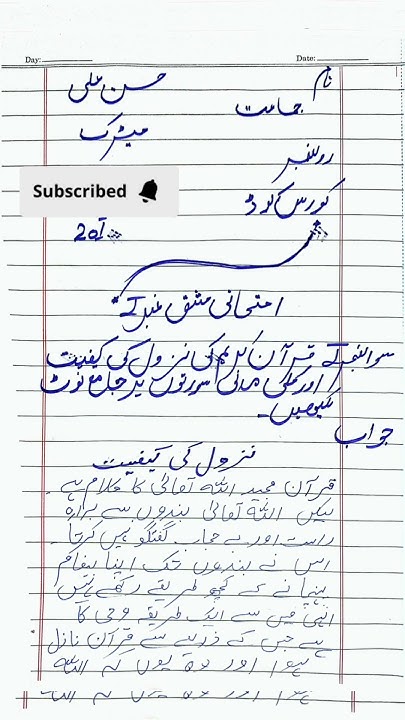 Day: Date:
نام حسن علی
جماعت میٹرک
رولنمبر
Subscribed
کورس کوڈ 201
امتحانی مشق نمبر 1
سوالنمبر 1 قرآن کریم کی نزول کی کیفیت
اور مکی مدنی سورتوں پر جامع نوٹ
لکھیں۔
جواب
نزول کی کیفیت
قرآن مجید اللہ تعالیٰ کا کلام ہے۔
لیکن اللہ تعالیٰ بندوں سے براہ
راست اور بے حجاب گفتگو نہیں کرتا۔
اس نے بندوں تک اپنا پیغام
پہنچانے کے کچھ طریقے رکھے ہیں
انہی میں سے ایک طریقے وحی کا
ہے جس کے ذریعے سے قرآن نازل
ہوا اور وہ یوں کہ اللہ